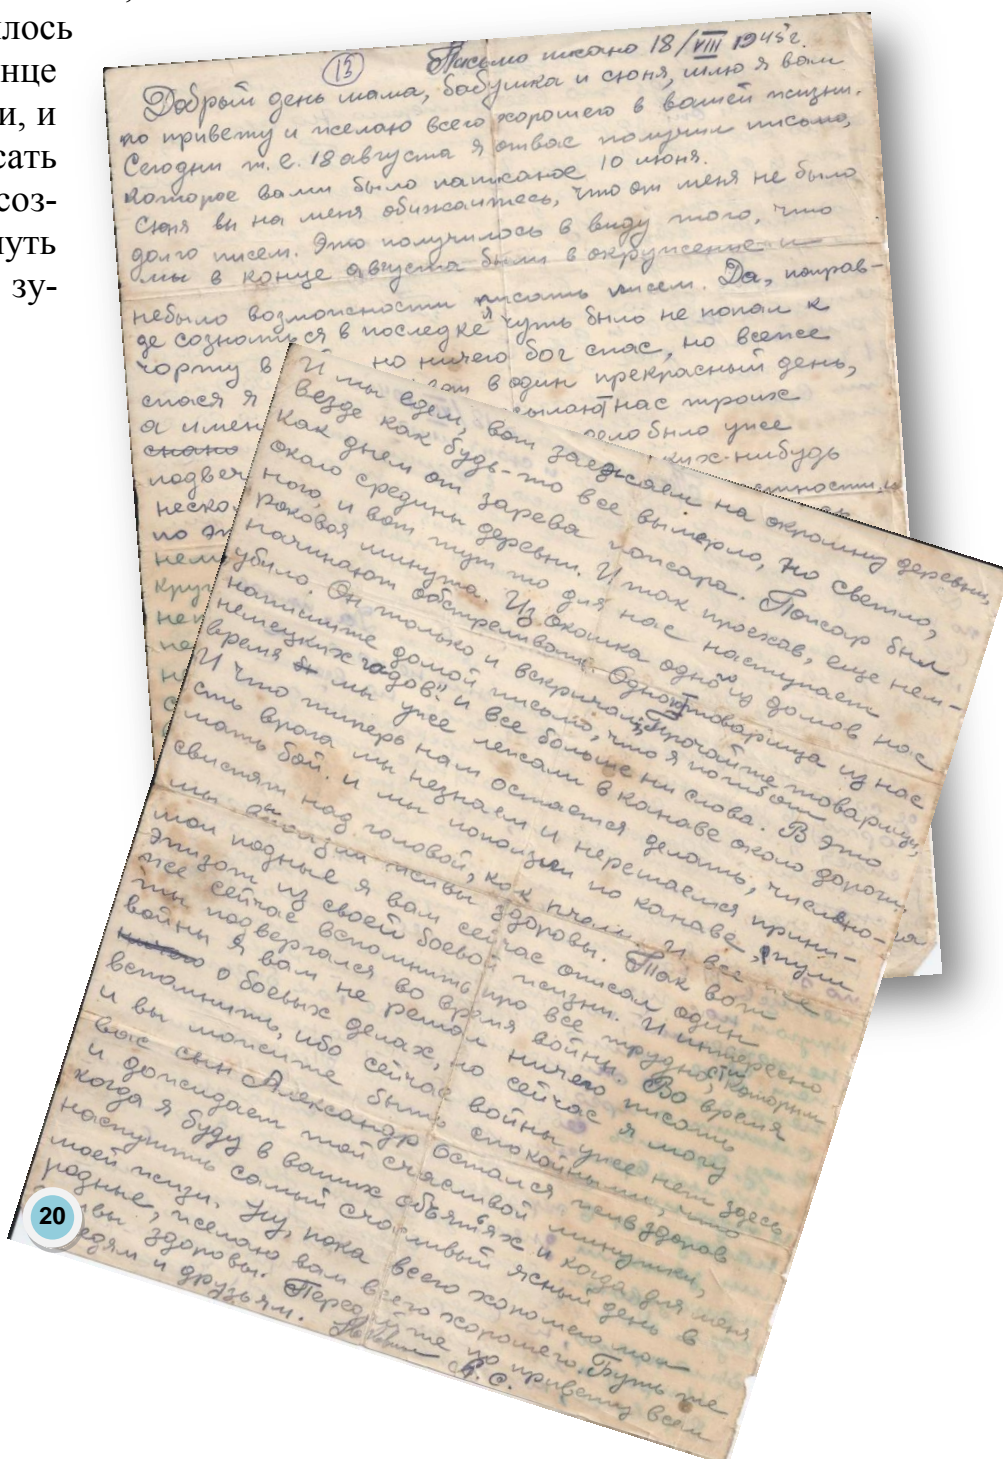 лось
нце
и, и
сать
соз-
нуть
зу-
13
Письмо писано 18/VIII 1945г.
Добрый день мама, бабушка и сюня, шлю я вам
по привету и желаю всего хорошего в вашей жизни.
Сегодни т. е. 18 августа я отвас получил письмо,
которое вами было написаное 10 июня.
Сюня вы на меня обижаитесь, что от меня не было
долго писем. Это получилось в виду того, что
мы в конце августа были в окружение и
небыло возможности писать писем. Да, поправ-
де сознаться в последке я чуть было не попал к
чорту в но ничего бог спас, но всеже
спася я в один прекрасный день,
а имен сылают нас троих
дело было уже
подвеч ких-нибудь
неско
по эт
нем
круг
И мы едем, вот заежжаем на огромную деревню,
везде как будь-то все вымерло, но светло,
как днем от зарева пожара. Пожар был
около средины деревни. И так проехав, еще нем-
ного, и вот тут то для нас наступает
роковая минута. Из окошка одного из домов нас
начинают обстреливать. Одного товарища из нас
убило. Он только и вскричал; "Прочайте товарищи,
напишите домой письмо, что я погиб от
немецких гадов" и все больше ни слова. В это
время мы уже лежали в канаве около дороги.
И что типерь нам остается делать, числено-
сть врага мы незнаем и нерешаемся прини-
мать бой. и мы поползли по канаве, пули
свистят над головой, как пчелы. И все же
мы выползли живы здоровы. Так вот
мои родные я вам сейчас описал один
эпизот из своей боевой жизни. И интересно
же сейчас вспомнить про все трудности, которым
ты подвергался во время войны. Во время
войны я вам не решал ничего писать
о боевых делах, но сейчас я могу
вспомнить, ибо сейчас войны уже нет здесь
и вы можите быть спокойными, что
ваш сын Александр остался жив здоров
и дожидает той счасливой минутки,
когда я буду в ваших объятьях и когда для меня
наступить самый счасливый ясный день в
моей жизни. Ну, пока всего хорошего мои
родные, желаю вам всего хорошего. Будь те
здоровы. Передайте по привету всем
и друзьям.
А. С.
20